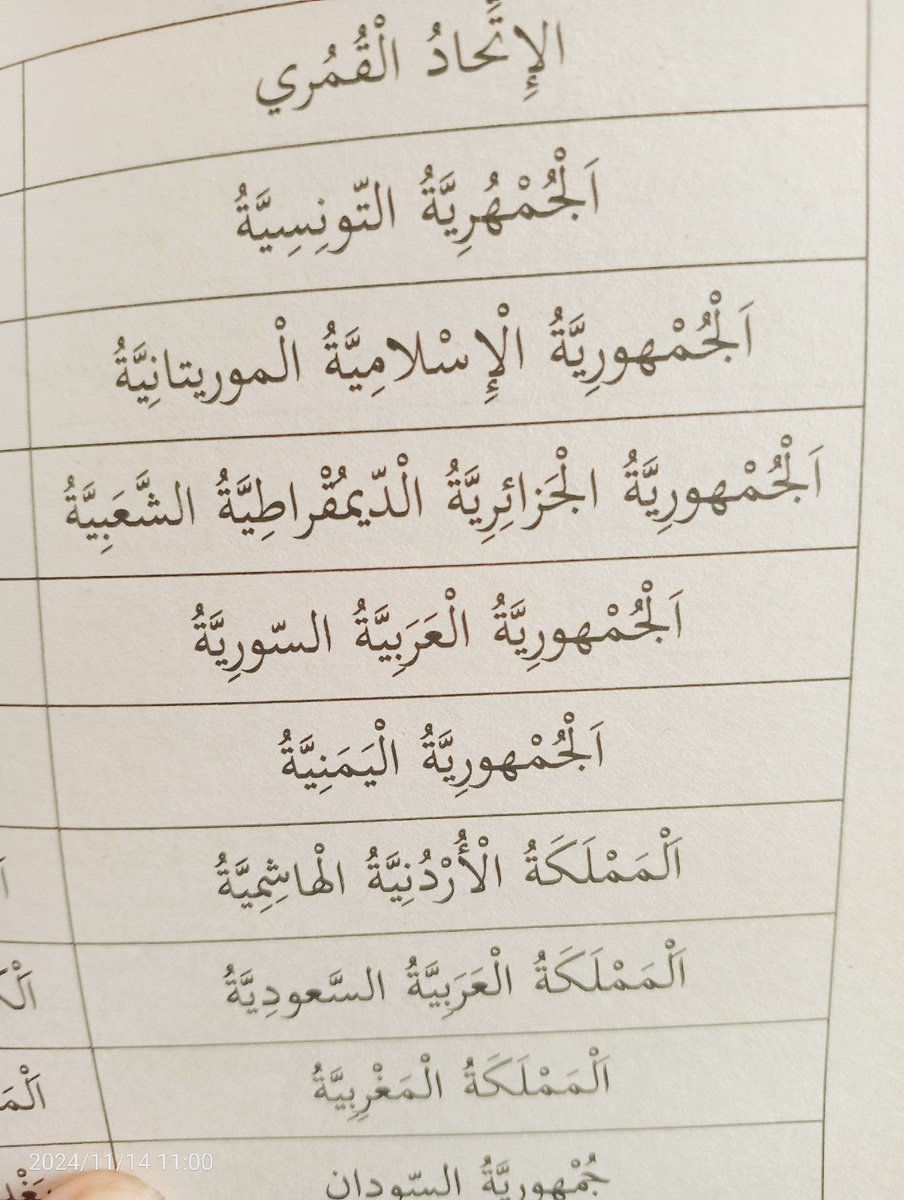 الإِتِّحادُ الْقُمُري
اَلْجُمْهُرِيَّةُ التّونِسِيَّةُ
اَلْجُمْهورِيَّةُ الْإِسْلامِيَّةُ الْموريتانِيَّةُ
اَلْجُمْهورِيَّةُ الْجَزائِرِيَّةُ الْدّيمُقْراطِيَّةُ الشَّعَبِيَّةُ
اَلْجُمْهورِيَّةُ الْعَرَبِيَّةُ السّورِيَّةُ
اَلْجُمْهورِيَّةُ الْيَمَنِيَّةُ
اَلْمَمْلَكَةُ الْأُرْدُنِيَّةُ الْهاشِمِيَّةُ
اَلْمَمْلَكَةُ الْعَرَبِيَّةُ السَّعودِيَّةُ
اَلْمَمْلَكَةُ الْمَغْرِبِيَّةُ
جُمْهورِيَّةُ السّودان
2024/11/14 11:00